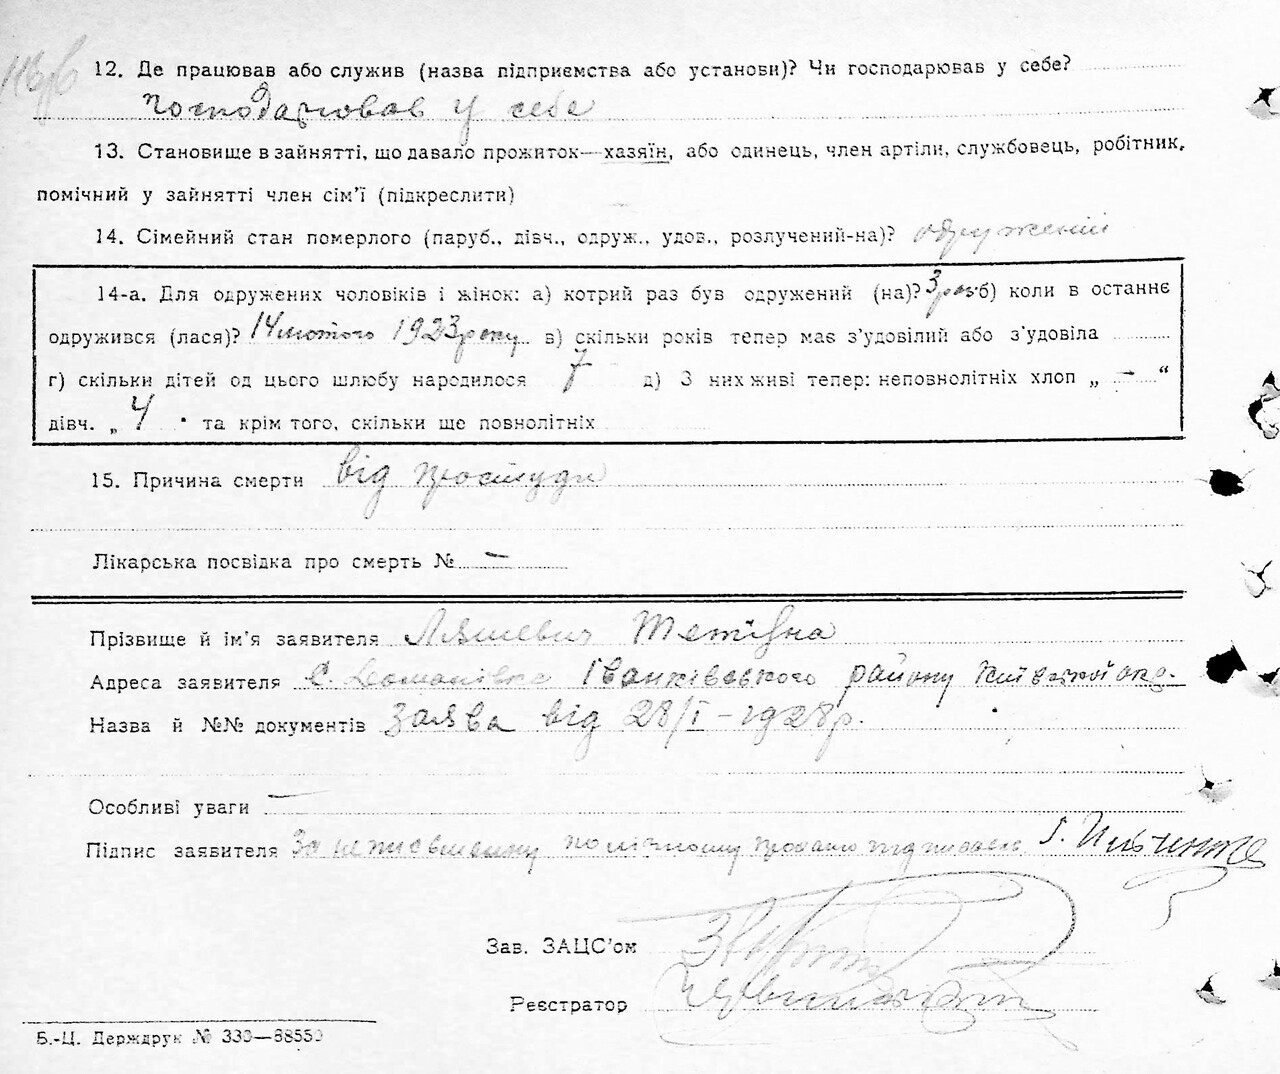 12. Де працював або служив (назва підприємства або установи)? Чи господарював у себе?
господарював у себе
13. Становище в зайнятті, що давало прожиток—хазяїн, або одинець, член артіли, службовець, робітник,
помічний у зайнятті член сім’ї (підкреслити)
14. Сімейний стан померлого (паруб., дівч., одруж., удов., розлучений-на)? одружений
14-а. Для одружених чоловіків і жінок: а) котрий раз був одружений (на)? 3 раз б) коли в останнє
одружився (лася)? 14 лютого 1923 року в) скільки років тепер має з’удовілий або з’удовіла
г) скільки дітей од цього шлюбу народилося 7 д) З них живі тепер: неповнолітніх хлоп „ — “
дівч. „ 4 та крім того, скільки ще повнолітніх
15. Причина смерти від простуди
Лікарська посвідка про смерть № —
Прізвище й ім’я заявителя Ляшевич
Адреса заявителя с. Іванківського району Київської окр.
Назва й №№ документів Заява від 28/I – 1928 р.
Особливі уваги —
Підпис заявителя За неписьменну
Зав. ЗАЦС’ом
Реєстратор
Б.-Ц. Держдрук № 333—8855